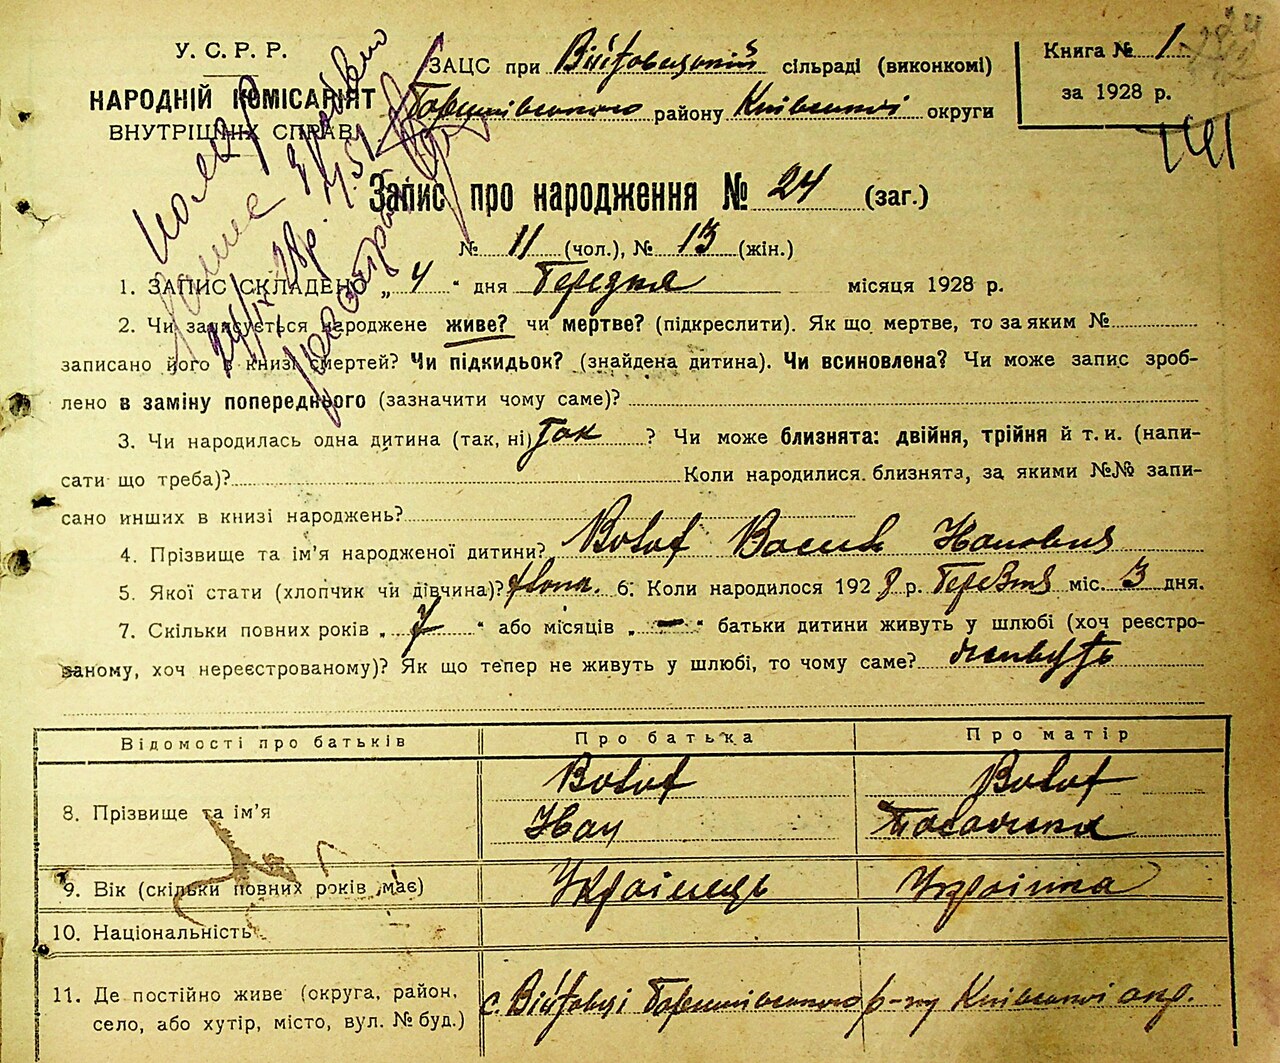 У. С. Р. Р.
НАРОДНІЙ КОМІСАРІЯТ
ВНУТРІШНІХ СПРАВ
ЗАЦС при Війтовецькій сільраді (виконкомі)
Баришівського району Київської округи
Книга № 1
за 1928 р.
Запис про народження № 24 (заг.)
№ 11 (чол.), № 13 (жін.)
1. ЗАПИС СКЛАДЕНО „ 4 “ дня Березня місяця 1928 р.
2. Чи записується народжене живе? чи мертве? (підкреслити). Як що мертве, то за яким №
записано його в книзі смертей? Чи підкидьок? (знайдена дитина). Чи всиновлена? Чи може запис зроб-
лено в заміну попереднього (зазначити чому саме)?
3. Чи народилась одна дитина (так, ні) так ? Чи може близнята: двійня, трійня й т. и. (напи-
сати що треба)? Коли народилися близнята, за якими №№ запи-
сано инших в книзі народжень?
4. Прізвище та ім’я народженої дитини? Вовк Василь
5. Якої стати (хлопчик чи дівчина)? 6. Коли народилося 1928 р. Березня міс. 3 дня.
7. Скільки повних років „ 7 “ або місяців „ — “ батьки дитини живуть у шлюбі (хоч реєстро-
ваному, хоч нереєстрованому)? Як що тепер не живуть у шлюбі, то чому саме? живуть
Відомості про батьків Про батька Про матір
8. Прізвище та ім’я Вовк Вовк
9. Вік (скільки повних років має) Українець Українка
10. Національність
11. Де постійно живе (округа, район,
село, або хутір, місто, вул. № буд.) с. Війтовці Баришівського р-ну Київської окр.